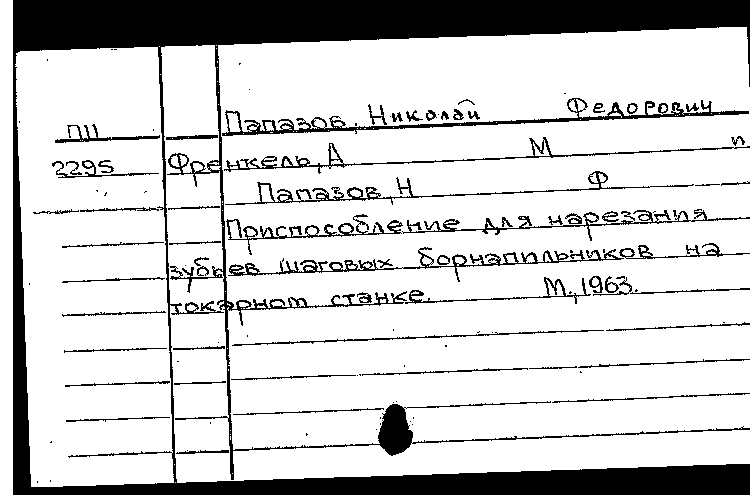 П11 Папазов, Николай Федорович
2295 Френкель, А М и
Папазов, Н Ф
Приспособление для нарезания
зубьев шаговых борнапильников на
токарном станке. М., 1963.